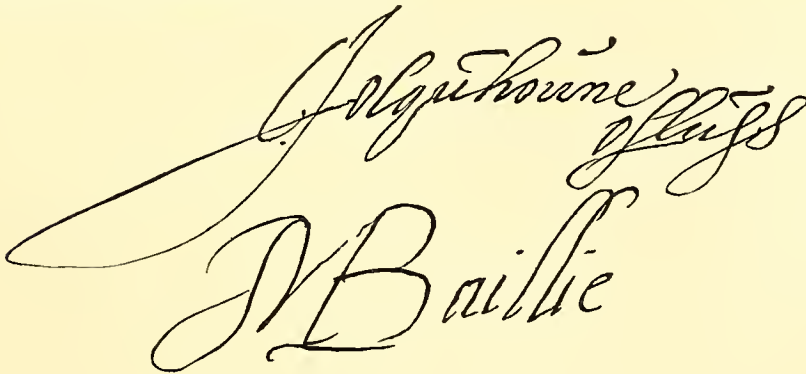 J Colquhoune
of Luss
M Baillie